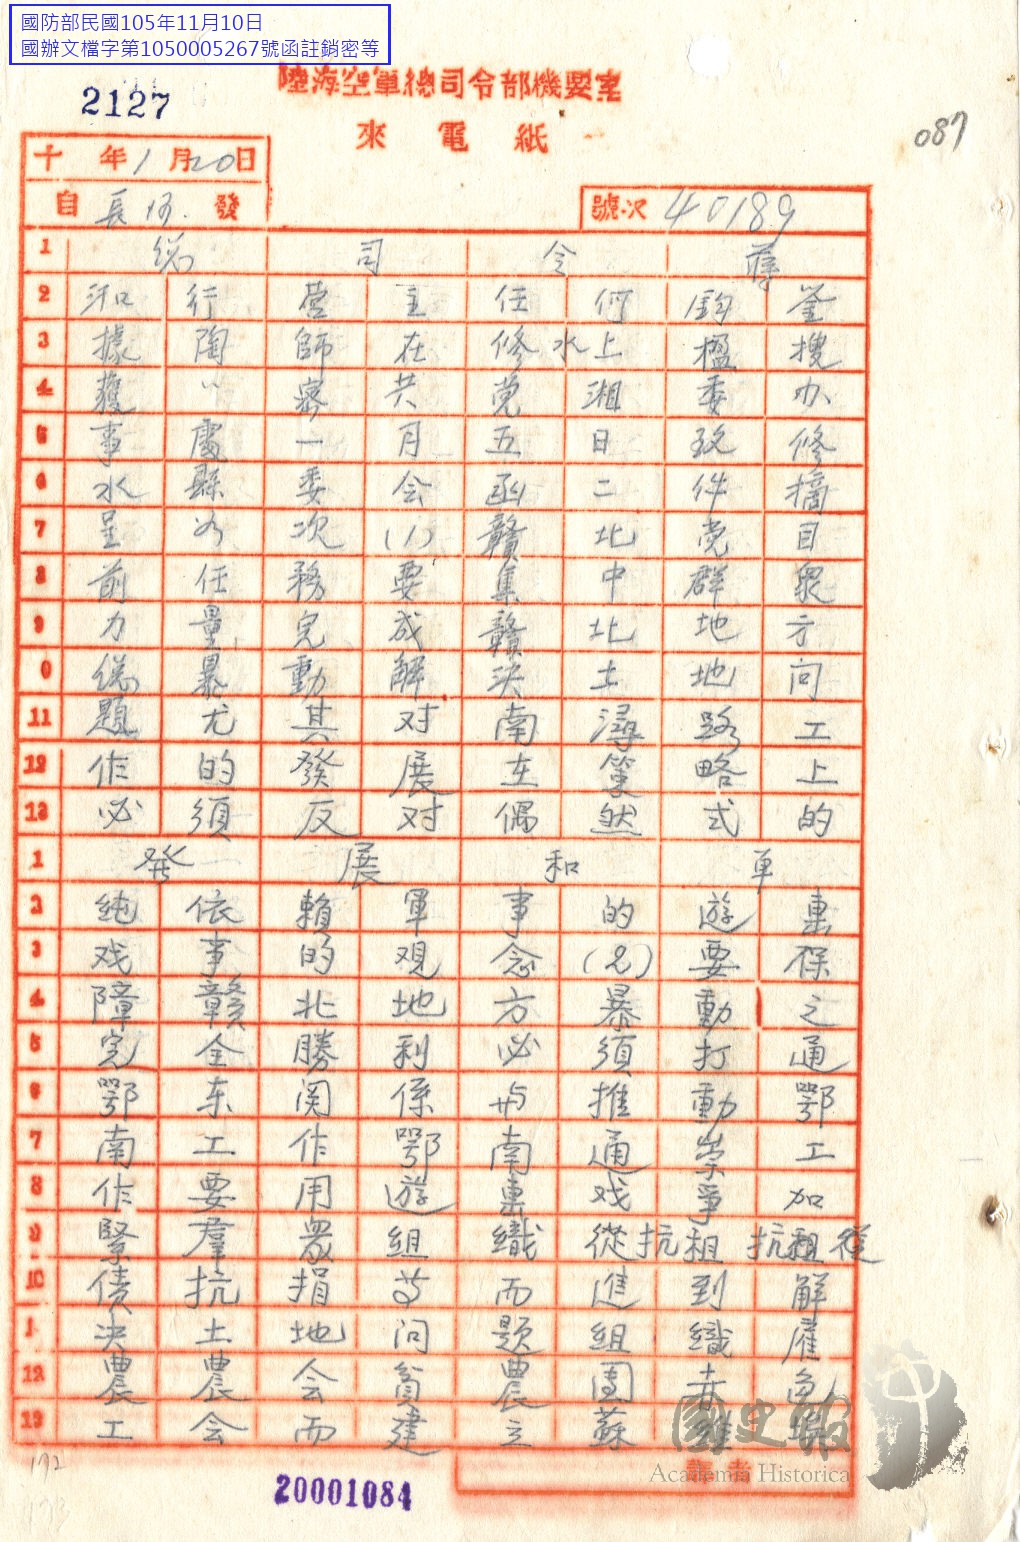 國防部民國105年11月10日
國辦文檔字第1050005267號函註銷密等
陸海空軍總司令部機要室
2127
來電紙
087
十 年1月20日
自 長沙. 發
號次 40189
1 総 司 令 蔣
2 行 营 主 任 何 鈞 鉴
3 據 陶 師 在 修水 上 搜
4 獲 密 共 党 湘 委 办
5 事 處 一 月 五 日 致 修
6 水 縣 委 会 函 二 件 摘
7 呈 次 (1) 贛 北 党 目
8 前 任 務 要 集 中 群 衆
9 力 量 完 成 贛 北 地 方
0 総 暴 動 解 決 土 地 问
11 題 尤 其 对 南 潯 路 工
12 作 的 發 展 在 策 略 上
13 必 須 反 对 偶 然 式 的
1 發 展 和 单
2 純 依 賴 軍 事 的 遊
3 戏 事 的 观 念 (2) 要 保
4 障 贛 北 地 方 暴 動 之
5 完 全 勝 利 必 須 打 通
6 鄂 东 関 係 与 推 動 鄂
7 南 工 作 鄂 南 通 崇 工
8 作 要 用 遊 戏 爭 加
9 緊 羣 衆 組 織 從 抗租 抗
10 债 抗 捐 等 而 進 到 解
1 決 土 地 问 題 組 織 雇
12 農 農 会 貧 農 團 赤 色
13 工 会 而 建 立 蘇 維
172
173
20001084
國史館
Academia Historica